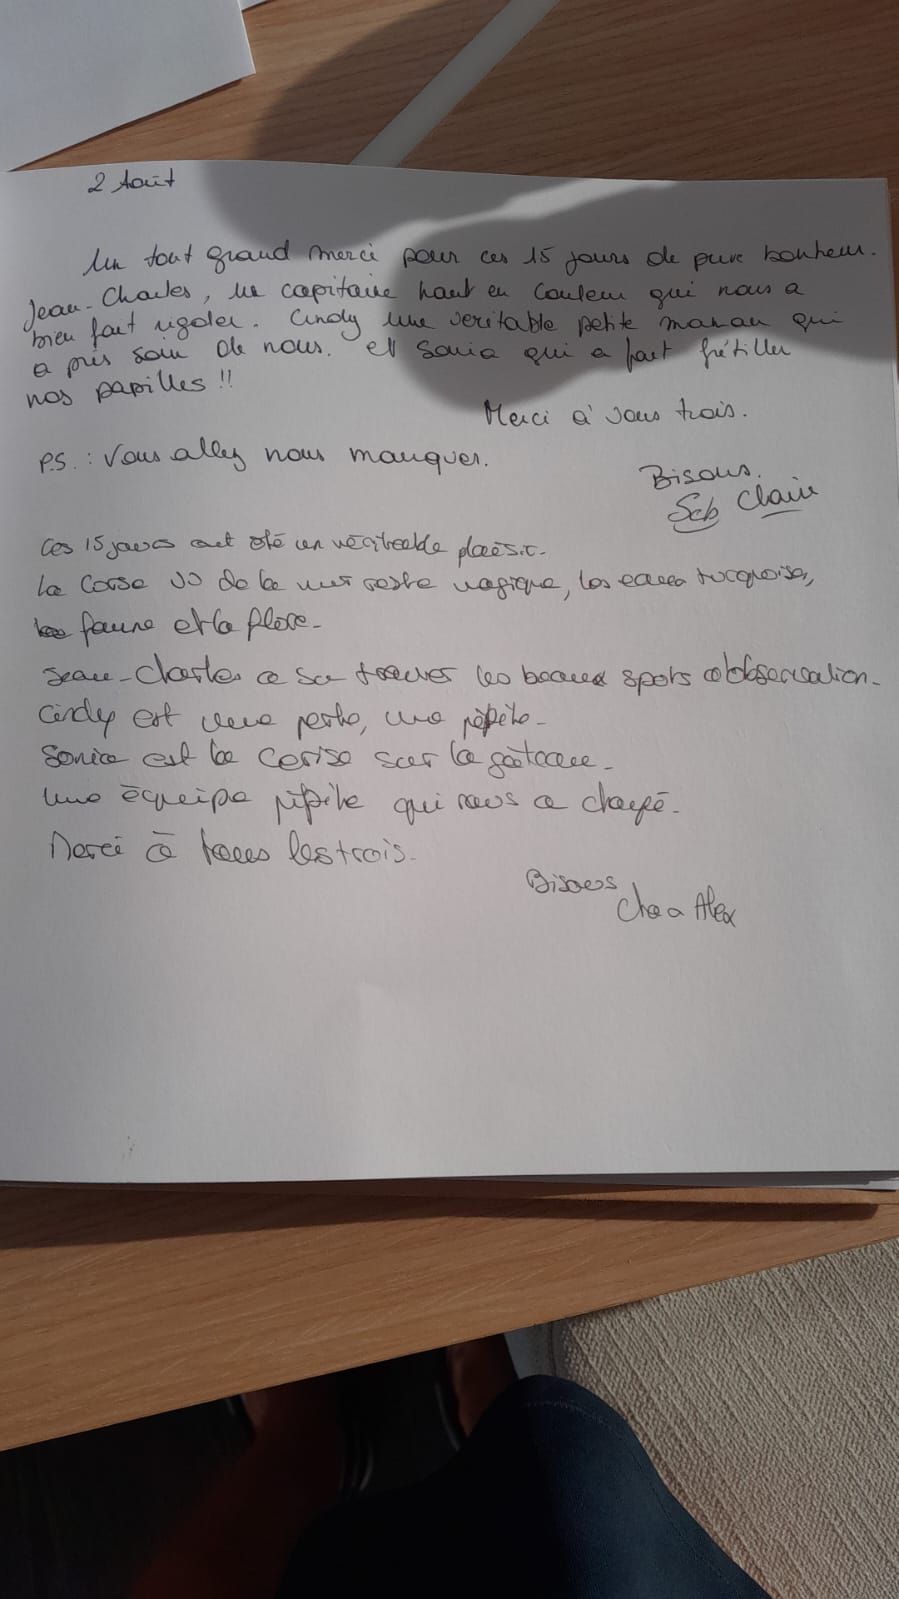 2 Août
Un tout grand merci pour ces 15 jours de pure bonheur.
Jean-Charles, un capitaine haut en couleur qui nous a
bien fait rigoler. Cindy une veritable petite maman qui
a pris soin de nous. et Sonia qui a fait frétiller
nos papilles !!
Merci à vous trois.
P.S. : Vous allez nous manquer.
Bisous.
Seb Claire
Ces 15 jours ont été un véritable plaisir.
La Corse vu de la mer reste magique, les eaux turquoises,
faune et la flore.
Jean-Charles a su trouver les beaux spots d'observation.
Cindy est une perle, une pépite.
Sonia est la cerise sur le gâteau.
Une équipe pépite qui nous a choyé.
Merci à tous les trois.
Bisous
Alex